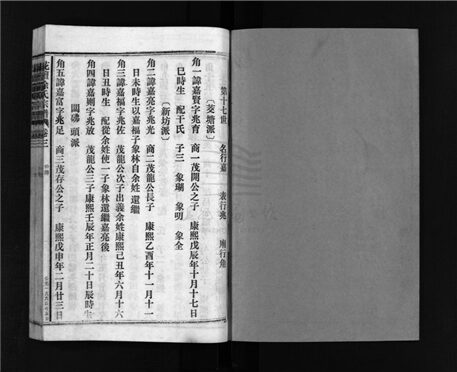 第十七世 名行嘉 表行兆 廟行角
〔茭塘派〕
角一諱嘉賢字兆育 商一茂開公之子 康熙戊辰年十月十七日
巳時生 配干氏 子三 象瑚 象明 象全
〔新坊派〕
角二諱嘉亮字兆光 商二茂龍公長子 康熙乙酉年十一月十一
日未時生以嘉福子象林自余姓還繼
角三諱嘉福字兆佐 茂龍公次子出義余姓康熙己丑年六月十六
日丑時生 配從余姓使一子象林還繼嘉亮後
角四諱嘉則字兆放 茂龍公三子康熙壬辰年正月二十日辰時生
闆磜頭派
角五諱嘉富字兆足 商三茂存公之子 康熙戊申年二月廿三日
氏宗 卷三